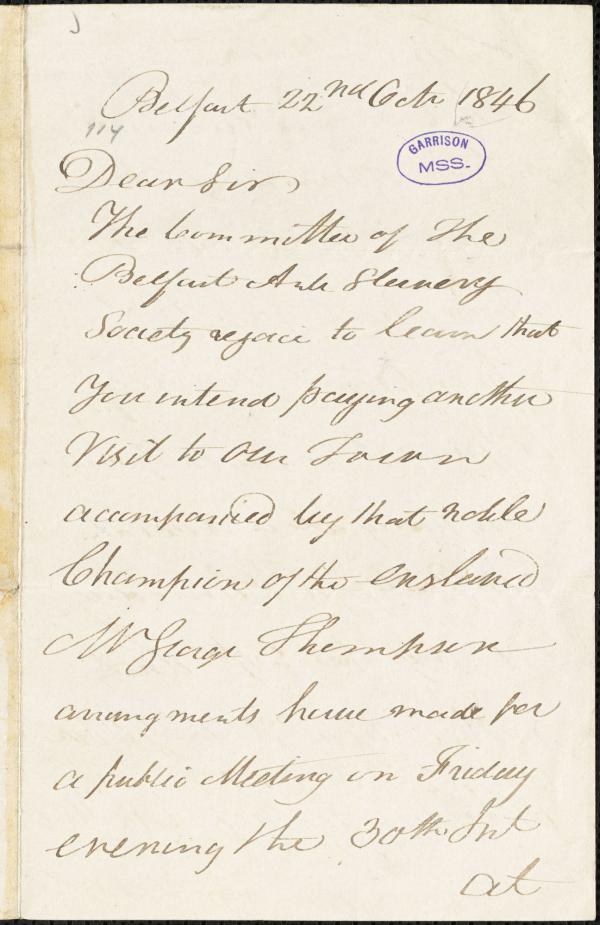 Belfast 22nd Octr 1846
114
GARRISON
MSS.
Dear Sir
The Committee of the
Belfast Anti Slavery
Society rejoice to learn that
you intend paying another
Visit to our Town
accompanied by that noble
Champion of the enslaved
Mr George Thompson
arrangments have made for
a public Meeting on Friday
evening the 30th Inst
at